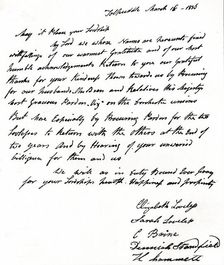 Tolpuddle March 16 - 1836
May it Please your Lordship
My Lord we whose Names are Present
with feelings of our warmest Gratitude and of our most
humble acknowledgements Return to you our Gratefull
thanks for your Kindness Shown towards us by Procuring
for our husbands
most Gracious Pardon
But More Especially by Procuring Pardon for the two
Loveless's to Return with the others at the end of
two years And by Hearing of your unwearied
for them and us
We will as in Duty Bound Ever Pray
for your Lordships health Happiness and prosperity
Elizabeth Loveless
Sarah Loveless
E Brine
Standfield
H Hammett